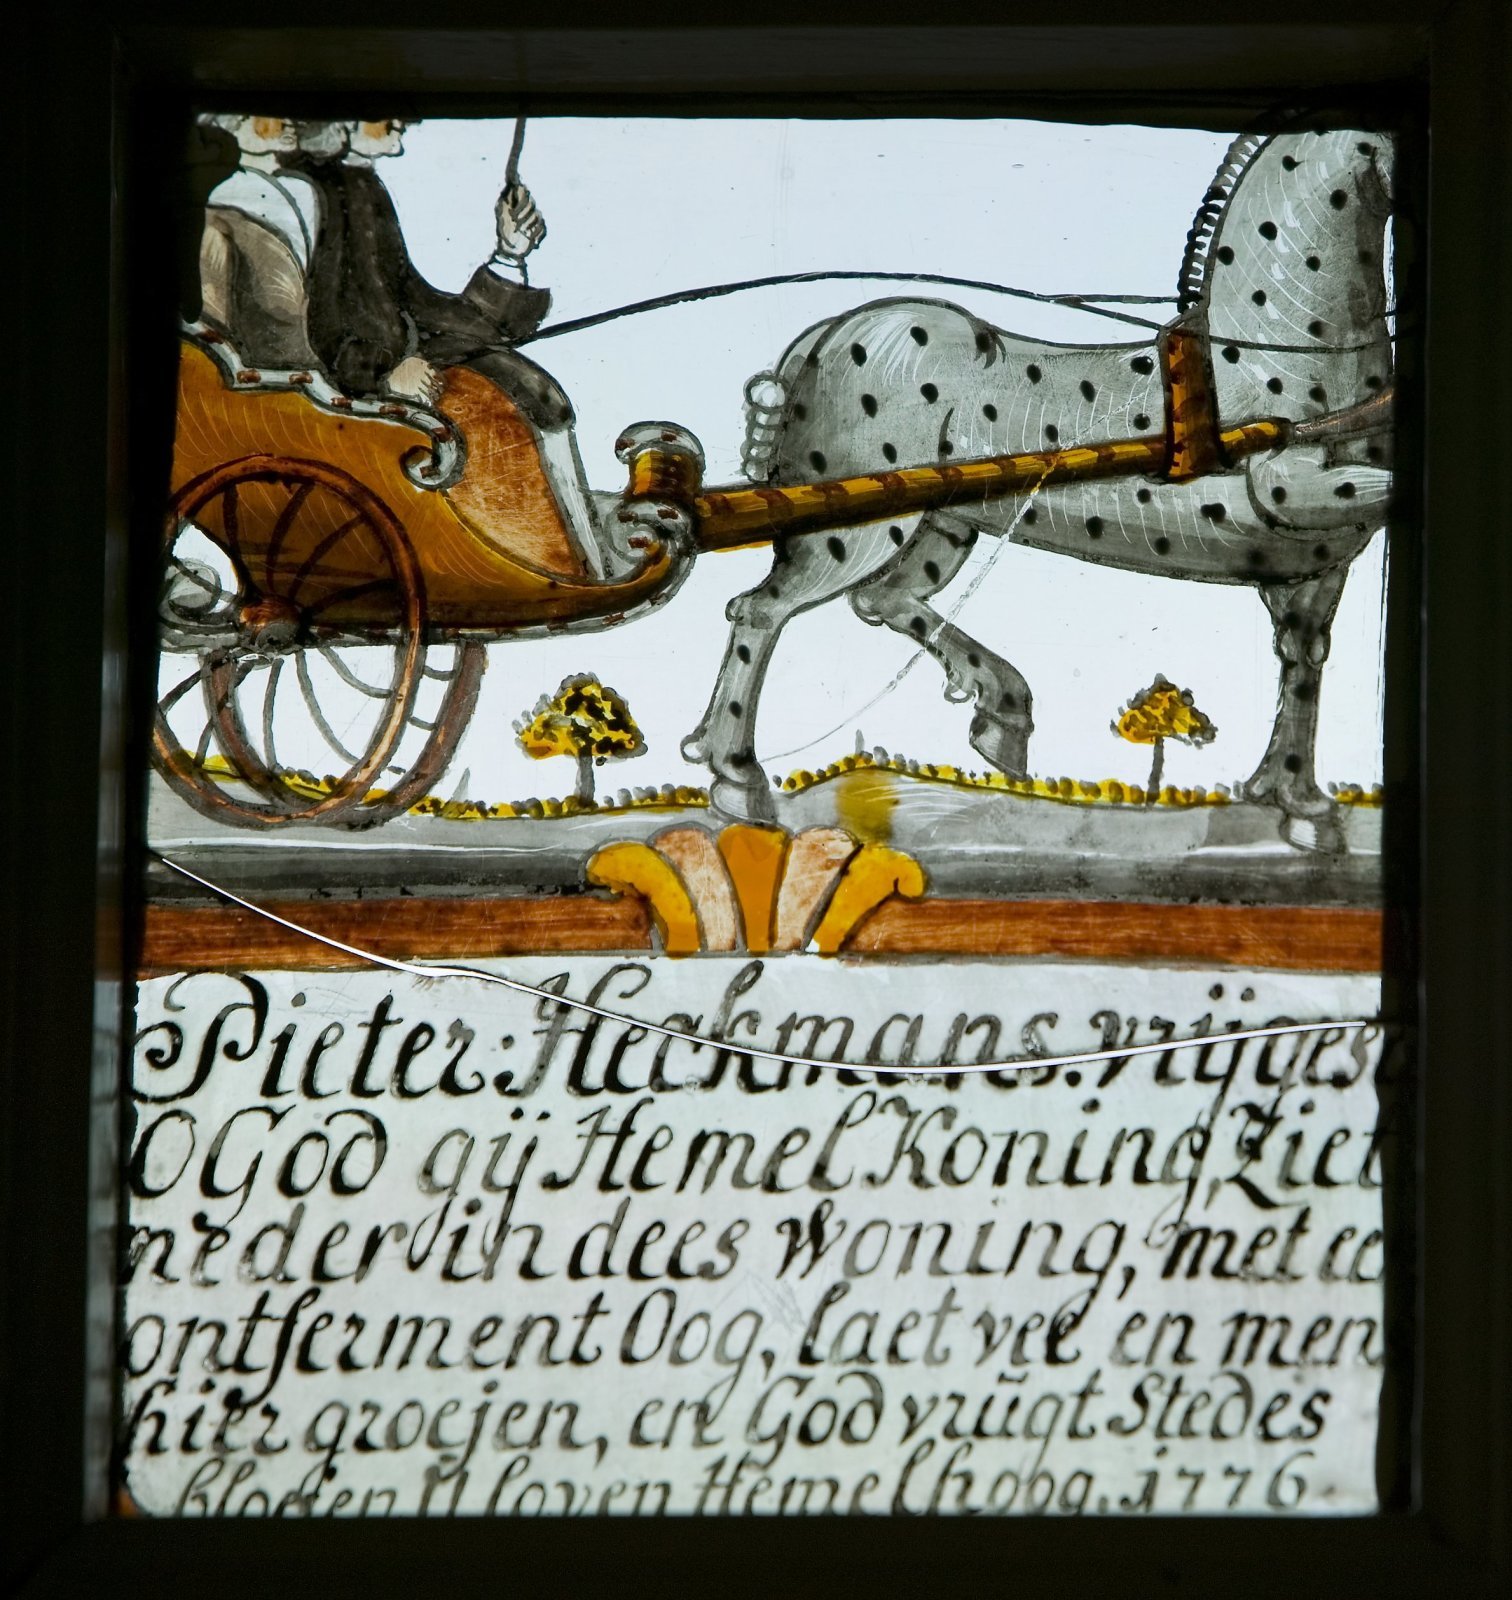 Pieter: Heckmans. vrijges
O God gij Hemel Koning, Ziet
neder in dees woning, met ee
ontferment Oog, laet vee en men
hier groejen, en God vrũgt Stedes
bloejen U loven Hemelhoog. 1776.